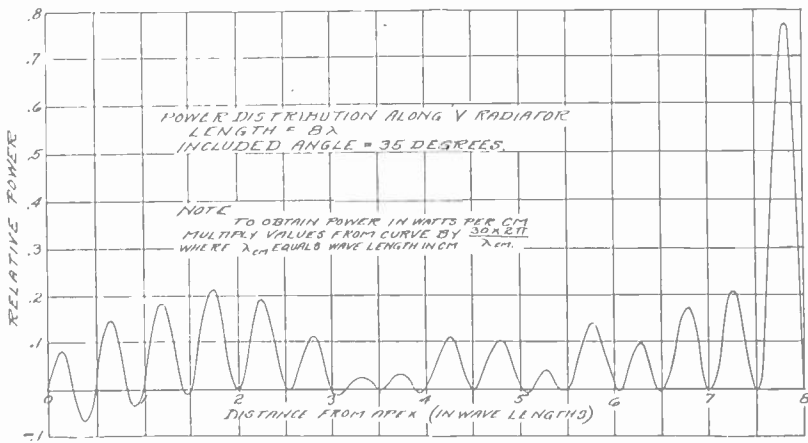 .8
.7
.6
.5
.4
.3
.2
.1
0
-.1
RELATIVE POWER
POWER DISTRIBUTION ALONG V RADIATOR
LENGTH = 8λ
INCLUDED ANGLE = 35 DEGREES.
NOTE
TO OBTAIN POWER IN WATTS PER CM
MULTIPLY VALUES FROM CURVE BY 30×2π / λcm.
WHERE λcm EQUALS WAVE LENGTH IN CM
0 1 2 3 4 5 6 7 8
DISTANCE FROM APEX (IN WAVE LENGTHS)